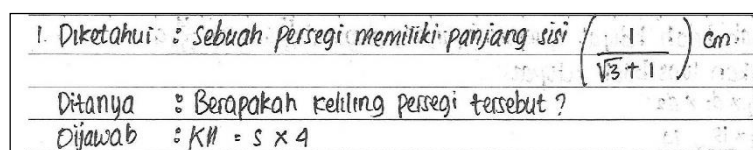 1. Diketahui : Sebuah persegi memiliki panjang sisi (1/(√3+1)) cm
Ditanya : Berapakah keliling persegi tersebut?
Dijawab : Kll = s × 4